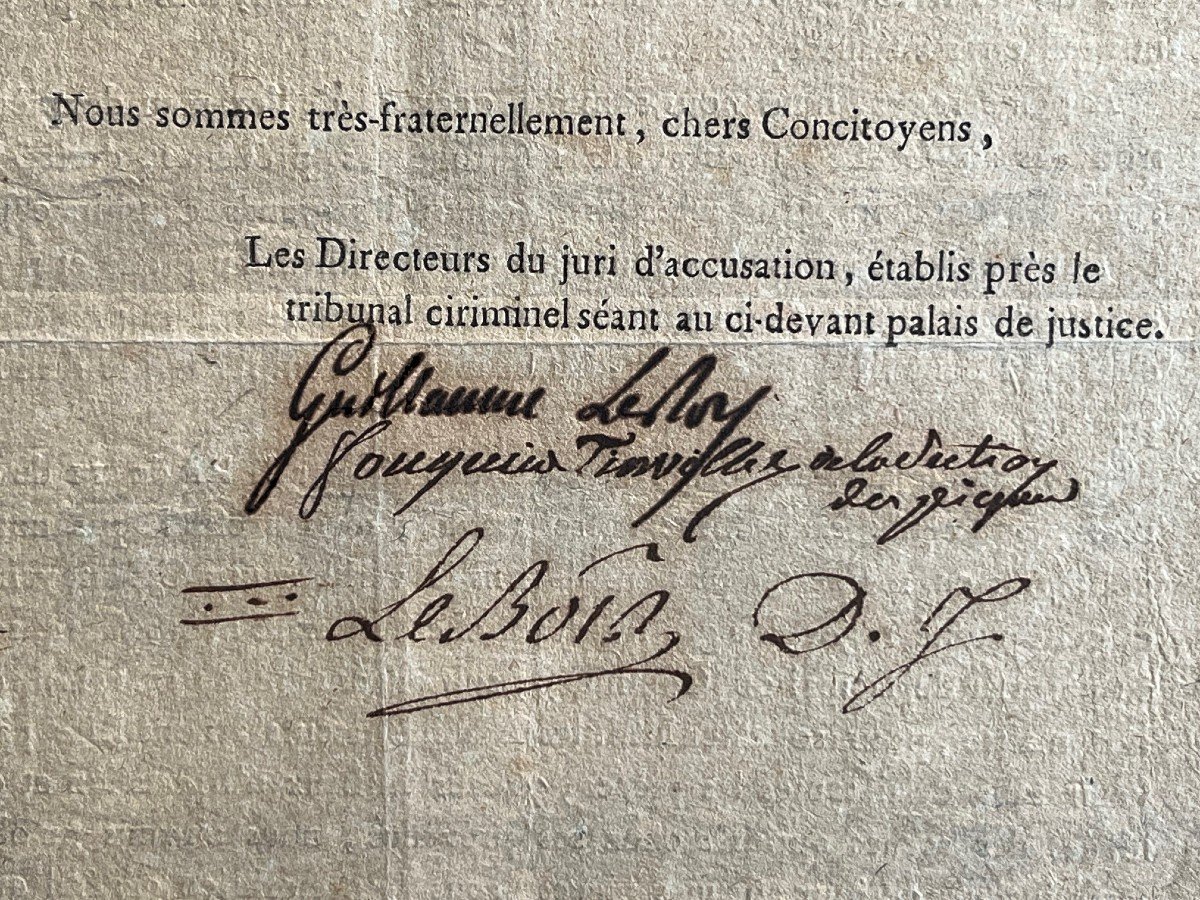 Nous sommes très-fraternellement, chers Concitoyens,
Les Directeurs du juri d'accusation, établis près le
tribunal ciriminel séant au ci-devant palais de justice.
Guillaume LeRoy
fouquier Tinville de la section
des piques
LeBois D. J